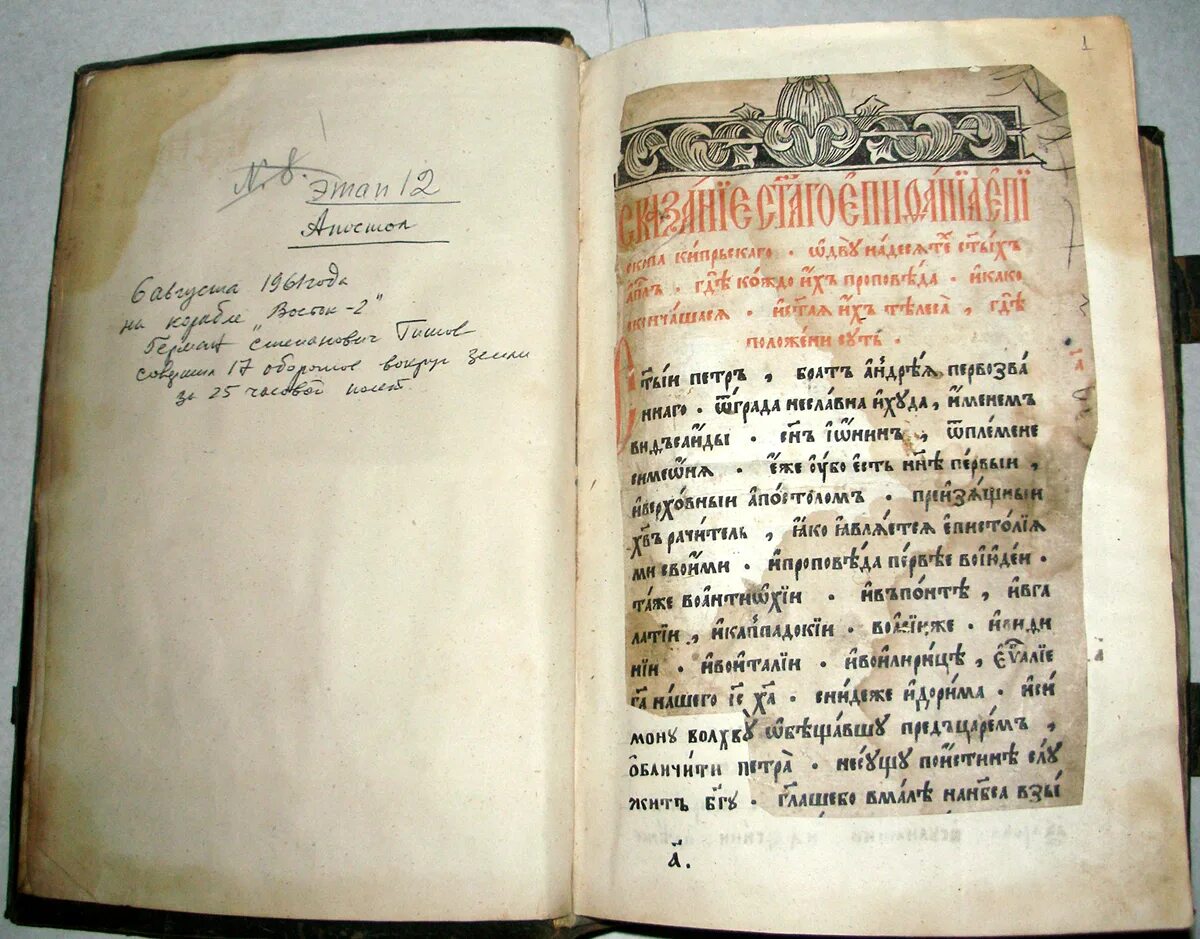 N. 8.
Этап 12
Апостол
6 августа 1961 года
на корабле "Восток-2"
Герман Степанович Титов
совершил 17 оборотов вокруг Земли
за 25 часовой полет.
1
Сказа́нїе ст҃а́гѡ є҆пифа́нїѧ є҆пї
скопа ки́прьскаго . ѡ҆двꙋ надесѧ́те ст҃ы́хъ
а҆пⷭ҇лъ . гдѣ̀ ко́ждо и҆́хъ проповѣ́да . и҆како
скончашасѧ . и҆ст҃а́ѧ и҆́хъ тѣлеса̀ , гдѣ̀
положе́ни сꙋ́ть .
Ст҃ы́и пе́тръ , бра́тъ а҆ндрѣ́ѧ первозва́
ннаго . ѿгра́да несла́вна и҆хꙋ́да , и҆́менемъ
видъса́йды . сн҃ъ і҆ѡ́нинъ , ѿпле́мене
симеѡ́нѧ . є҆́же ᲂу҆́бо є҆сть нн҃ѣ пе́рвыи ,
и҆верхо́вныи а҆по́столомъ . преизѧ́щныи
хв҃ъ рачи́тель , ꙗ҆́ко ꙗ҆влѧ́етсѧ є҆писто́лїѧ
ми свои́ми . и҆проповѣ́да пе́рвѣе вої҆ꙋде́и .
та́же воа҆нтиѡхі́и . и҆въпо́нтѣ , и҆вга
ла́тїи , и҆каппадокі́и . воа҆сїи́же . и҆виѳи
ні́и . и҆вои҆талі́и . и҆вои҆лири́цѣ , є҆ѵⷢ҇а́лїе
гⷭ҇а на́шего і҆с҃ х҃а . сни́деже и҆дори́ма . и҆си́
монꙋ волхвꙋ̀ ѡ҆бѣща́вшꙋ предъцаре́мъ ,
ѡ҆бличи́ти петра̀ . несꙋ́щꙋ пои́стинѣ слꙋ
жи́тъ бг҃ꙋ . гл҃а́шебо вма́лѣ нанб҃са̀ взы́
а҃.